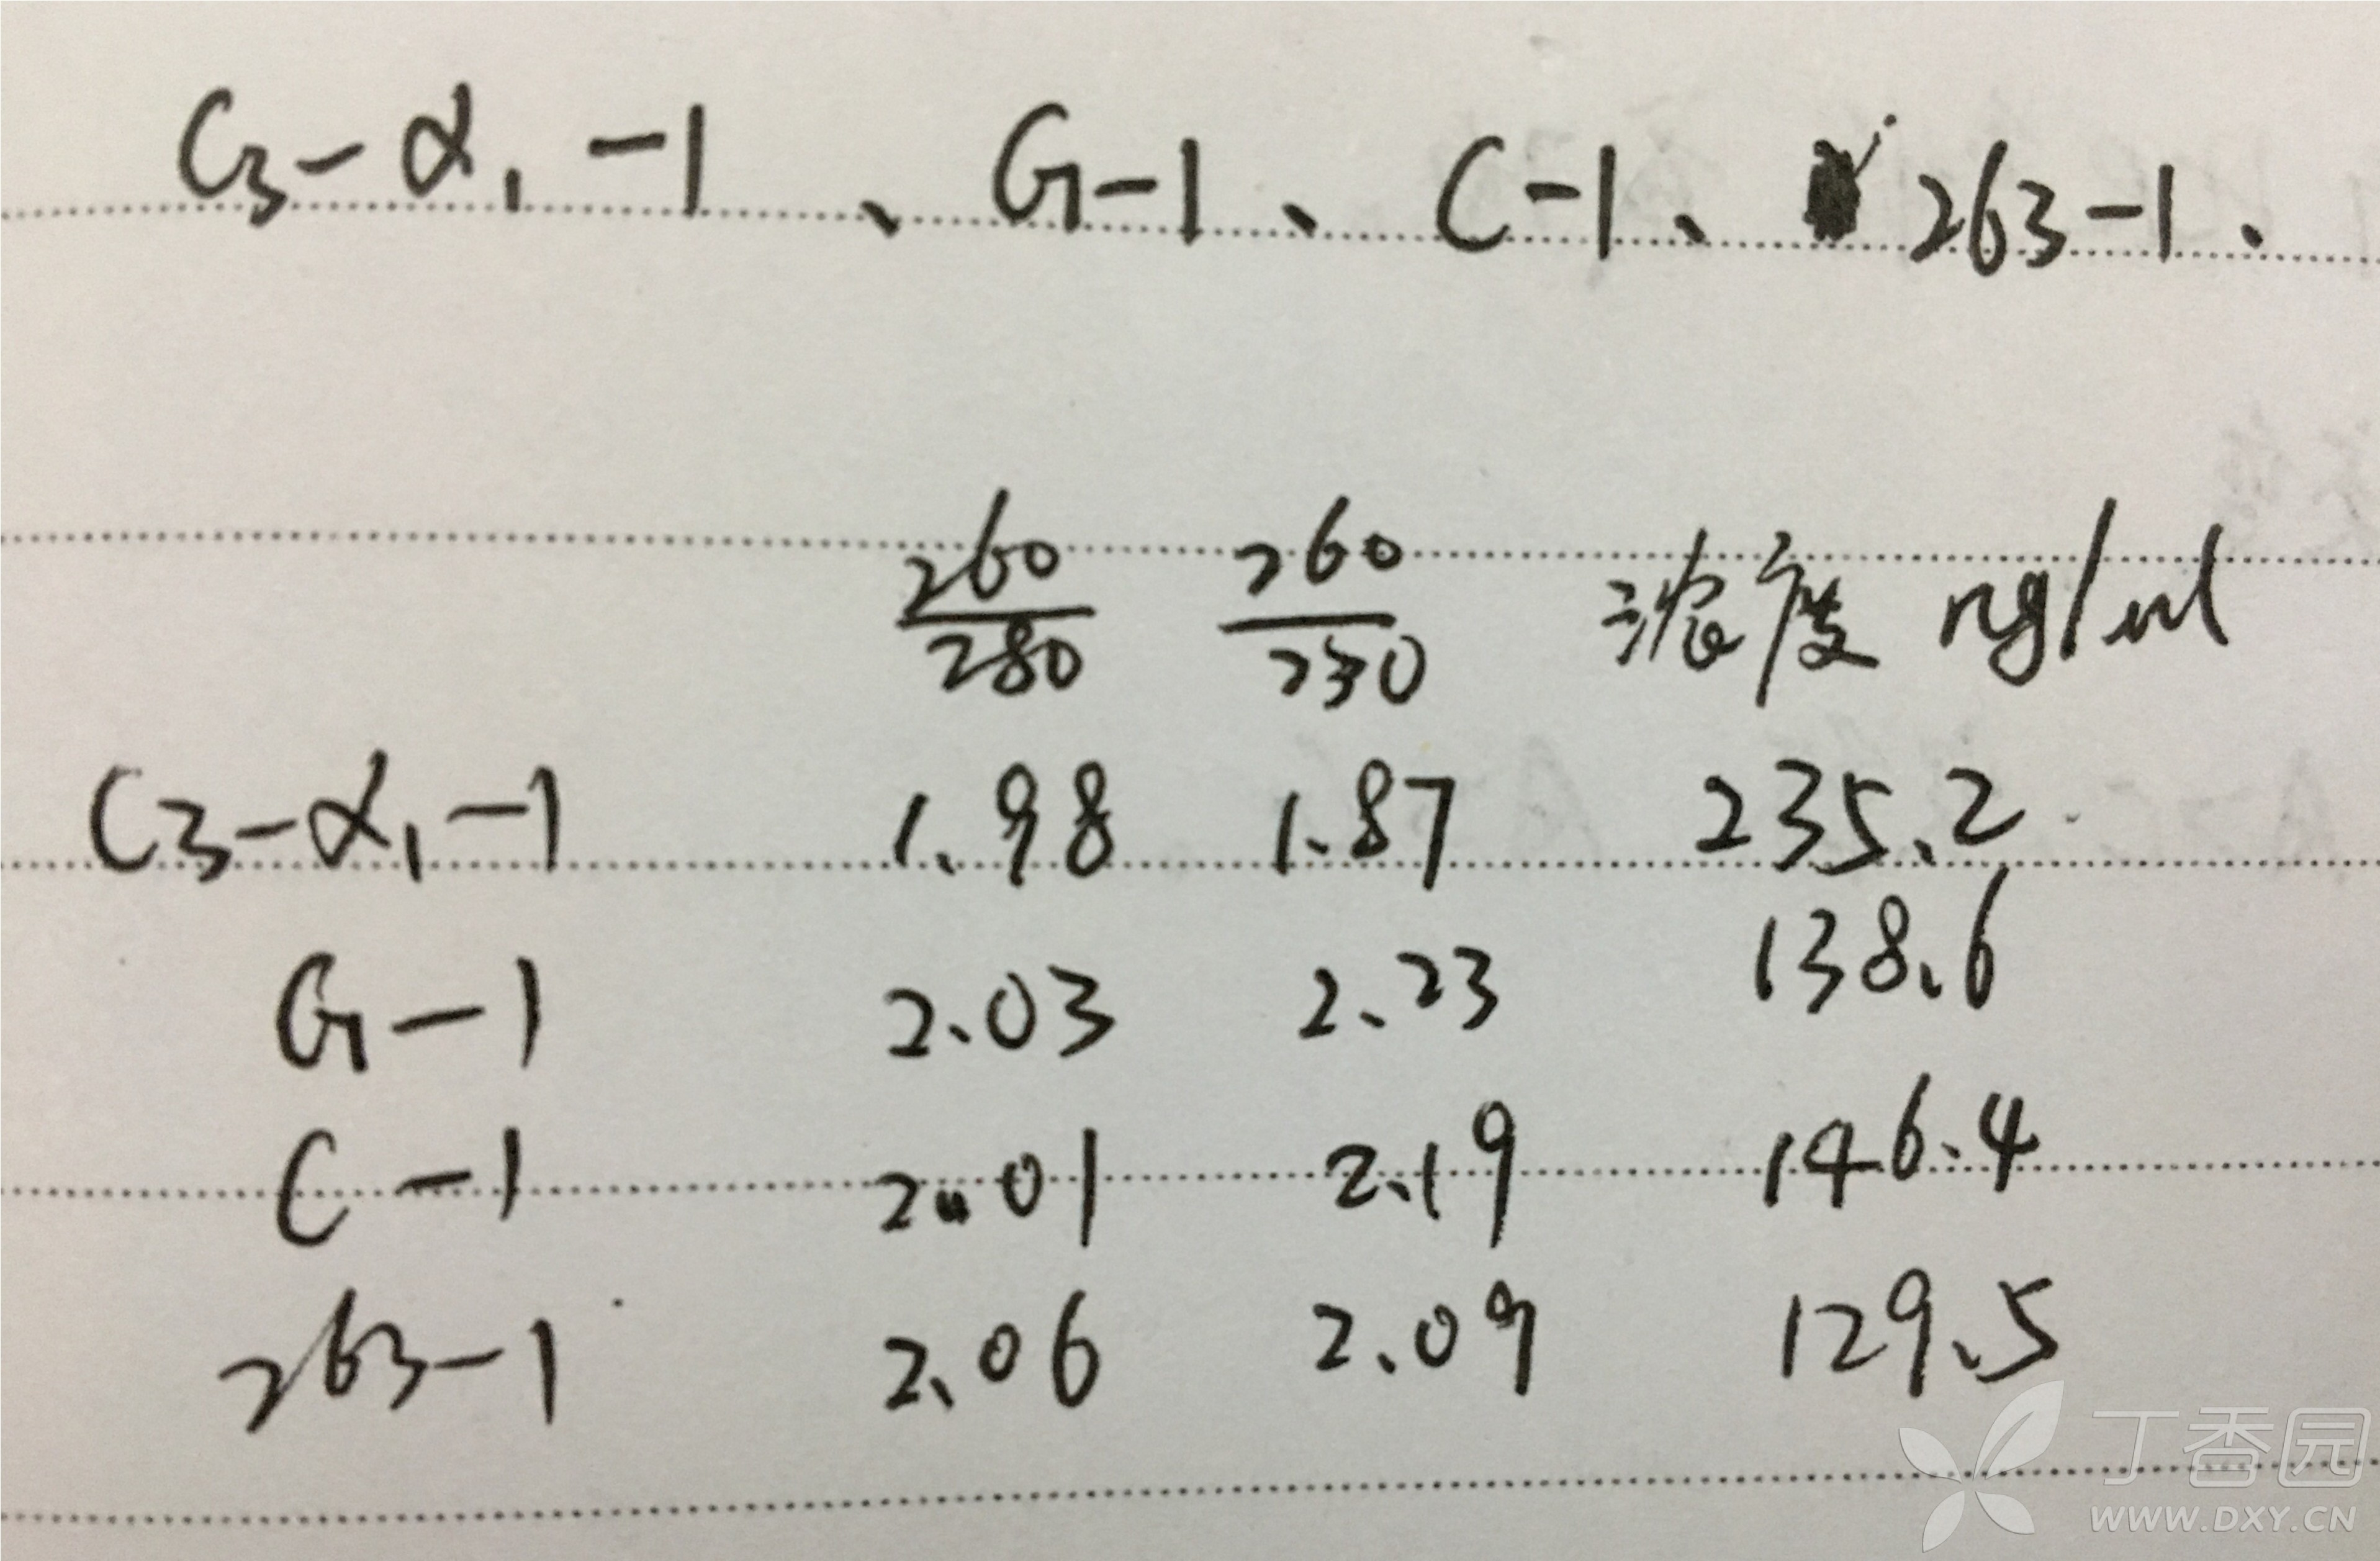 C3-α1-1、G-1、C-1、263-1、
260/280 260/230 浓度 ng/ml
C3-α1-1 1.98 1.87 235.2
G-1 2.03 2.23 138.6
C-1 2.01 2.19 146.4
263-1 2.06 2.09 129.5
丁香园
WWW.DXY.CN